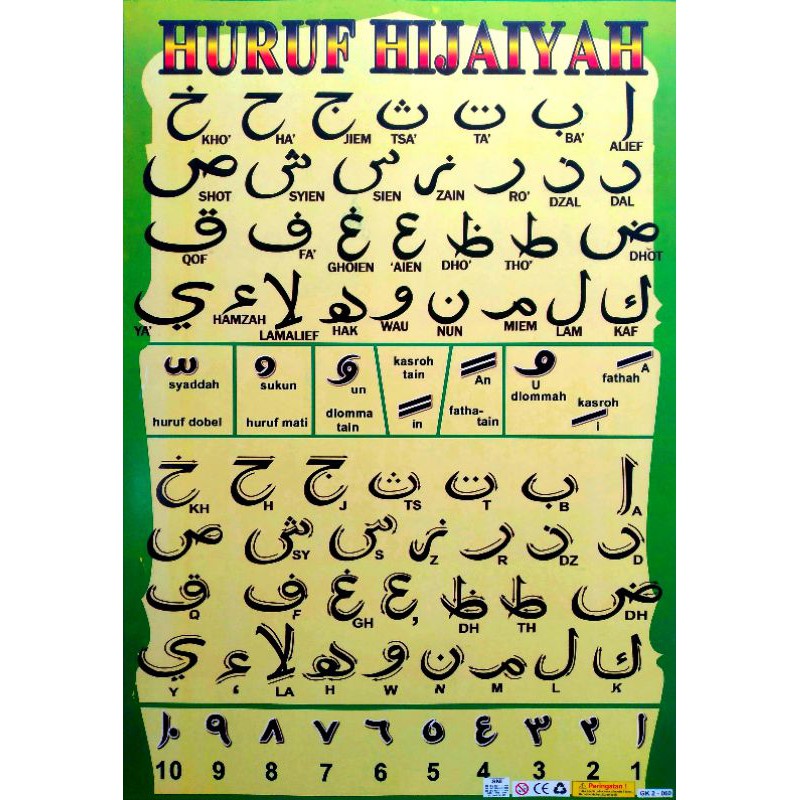 HURUF HIJAIYAH
ا ب ت ث ج ح خ
ALIEF BA' TA' TSA' JIEM HA' KHO'
د ذ ر ز س ش ص
DAL DZAL RO' ZAIN SIEN SYIEN SHOT
ض ط ظ ع غ ف ق
DHOT THO' DHO' 'AIEN GHOIEN FA' QOF
ك ل م ن و ه لا ء ي
KAF LAM MIEM NUN WAU HAK LAMALIEF HAMZAH YA'
syaddah
huruf dobel
sukun
huruf mati
un
dlomma
tain
kasroh
tain
in
An
fatha-
tain
U
dlommah
fathah A
kasroh
i
ا ب ت ث ج ح خ
A B T TS J H KH
د ذ ر ز س ش ص
D DZ R Z S SY
ض ط ظ ع غ ف ق
DH TH DH ' GH F Q
ك ل م ن و ه لا ء ي
K L M N W H LA ' Y
١ ٢ ٣ ٤ ٥ ٦ ٧ ٨ ٩ ١٠
10 9 8 7 6 5 4 3 2 1
CE
Peringatan !
GK 2 - 060